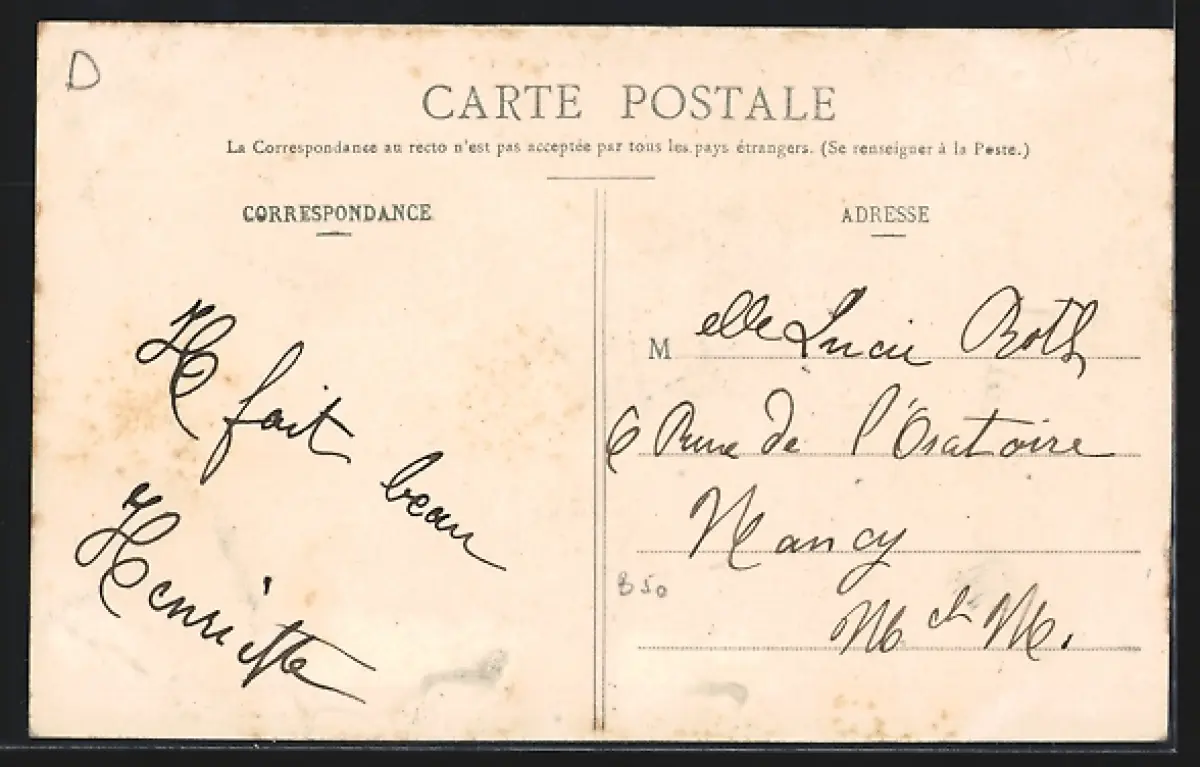 D
CARTE POSTALE
La Correspondance au recto n'est pas acceptée par tous les pays étrangers. (Se renseigner à la Poste.)
CORRESPONDANCE
Il fait beau
Henriette
ADRESSE
Melle Lucie Roth
6 Rue de l'Oratoire
Nancy
850
M et M.